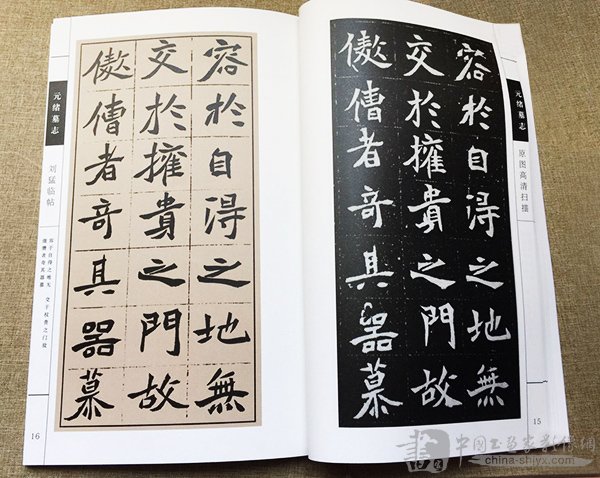 元绪墓志
原图高清扫描
容於自淂之地無
交於權貴之門故
傲傮者奇其器慕
15
容於自淂之地無
交於權貴之門故
傲傮者奇其器慕
元绪墓志
刘猛临帖
容于自得之地无 交于权贵之门故
者奇其器慕
16
中國書畫家影像網
china-shjyx.com